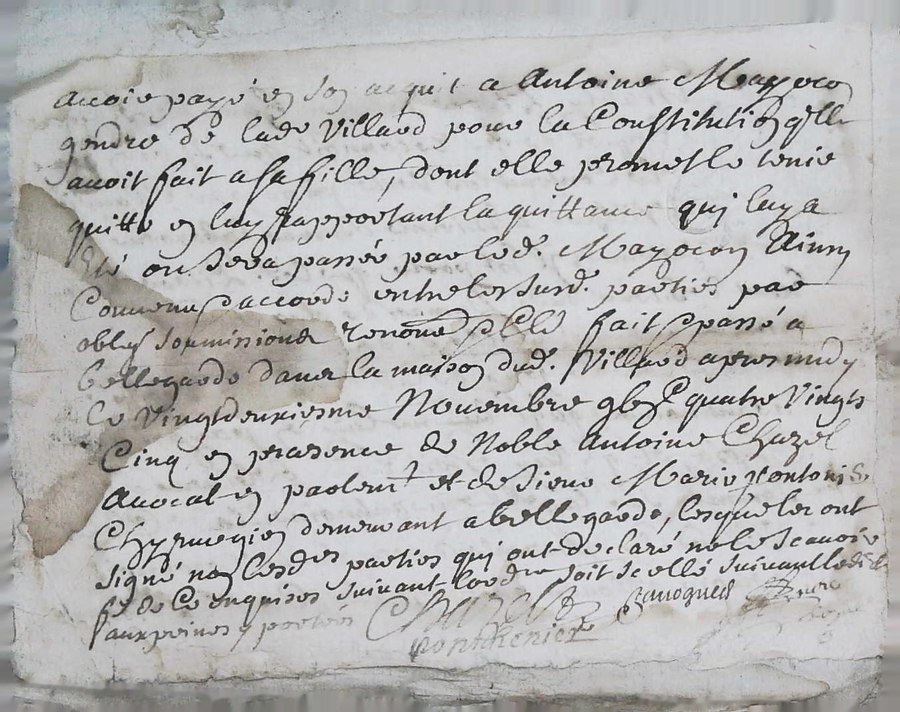 avoir payé en son acquit a Antoine Mayocon
gendre de lade Villard pour la Constitution qelle
avoit fait a sa fille, dont elle promet le tenir
quitte en luy rapportant la quittance qui luy a
été ou sera passée par led. Mayocon Ainsy
Convenu & accordé entre les surd. parties par
oblig soumissions renon & Cle fait & passé a
bellegarde dans la maison dud. Villard apres midy
le vingtdeuxiesme Novembre gbzC quatre vingts
Cinq en presence de Noble Antoine Chazel
Avocat en parlemt et de Sieur Marie
Chyrurgien demeurant a bellegarde, lesquels ont
signé non lesdes parties qui ont declaré ne le scavoir
fe de Ce enquises suivant lordre soit scellé suivant ledit
aux peines y portées Chazel